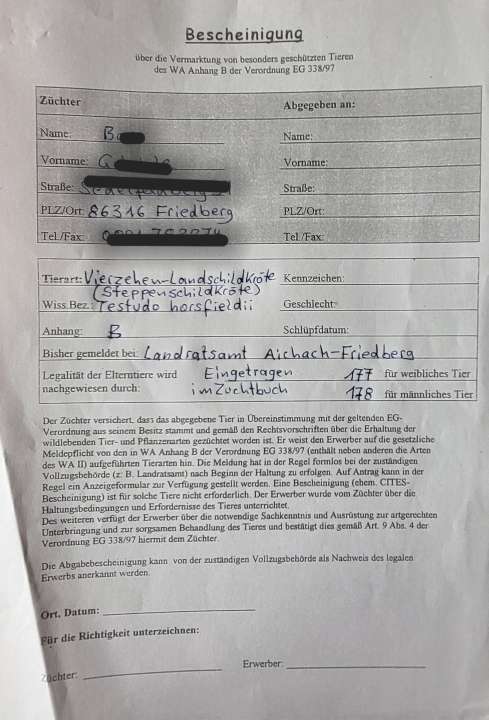 Bescheinigung
über die Vermarktung von besonders geschützten Tieren
des WA Anhang B der Verordnung EG 338/97
Züchter
Abgegeben an:
Name: B
Name:
Vorname: G
Vorname:
Straße:
Straße:
PLZ/Ort: 86316 Friedberg
PLZ/Ort:
Tel./Fax:
Tel./Fax:
Tierart: Vierzehen-Landschildkröte
(Steppenschildkröte)
Kennzeichen:
Wiss.Bez.: Testudo horsfieldii
Geschlecht:
Anhang: B
Schlüpfdatum:
Bisher gemeldet bei: Landratsamt Aichach-Friedberg
Legalität der Elterntiere wird Eingetragen 177 für weibliches Tier
nachgewiesen durch: im Zuchtbuch 178 für männliches Tier
Der Züchter versichert, dass das abgegebene Tier in Übereinstimmung mit der geltenden EG-
Verordnung aus seinem Besitz stammt und gemäß den Rechtsvorschriften über die Erhaltung der
wildlebenden Tier- und Pflanzenarten gezüchtet worden ist. Er weist den Erwerber auf die gesetzliche
Meldepflicht von den in WA Anhang B der Verordnung EG 338/97 (enthält neben anderen die Arten
des WA II) aufgeführten Tierarten hin. Die Meldung hat in der Regel formlos bei der zuständigen
Vollzugsbehörde (z. B. Landratsamt) nach Beginn der Haltung zu erfolgen. Auf Antrag kann in der
Regel ein Anzeigeformular zur Verfügung gestellt werden. Eine Bescheinigung (ehem. CITES-
Bescheinigung) ist für solche Tiere nicht erforderlich. Der Erwerber wurde vom Züchter über die
Haltungsbedingungen und Erfordernisse des Tieres unterrichtet.
Des weiteren verfügt der Erwerber über die notwendige Sachkenntnis und Ausrüstung zur artgerechten
Unterbringung und zur sorgsamen Behandlung des Tieres und bestätigt dies gemäß Art. 9 Abs. 4 der
Verordnung EG 338/97 hiermit dem Züchter.
Die Abgabebescheinigung kann von der zuständigen Vollzugsbehörde als Nachweis des legalen
Erwerbs anerkannt werden.
Ort, Datum:
Für die Richtigkeit unterzeichnen:
Züchter:
Erwerber: